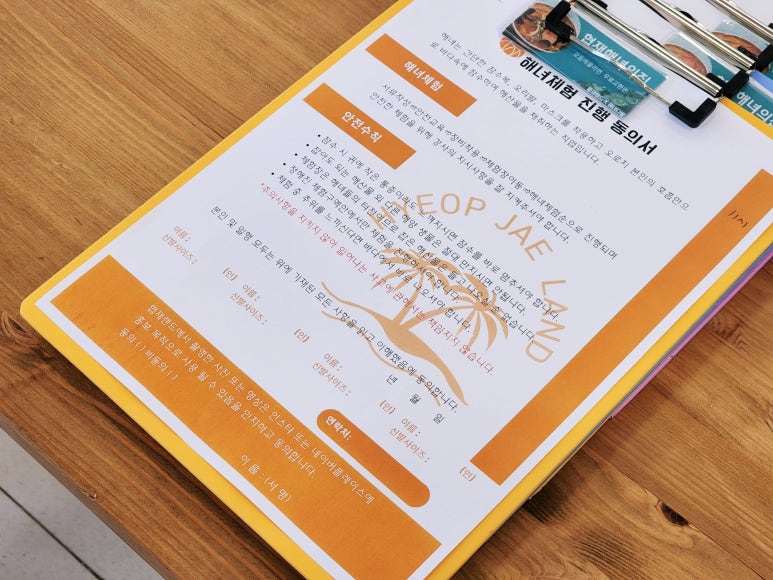 현재해녀의집
해녀체험 진행 동의서
해녀는 간단한 잠수복, 오리발, 마스크를 착용하고 오로지 본인의 호흡만으
로 바다속에 잠수하여 해산물을 채취하는 직업입니다.
해녀체험
서류작성⇨안전교육⇨장비착용⇨체험장이동⇨해녀체험순으로 진행되며
안전한 체험을 위해 강사의 지시사항을 잘 지켜주셔야 합니다.
안전수칙
• 잠수 시 귀에 작은 통증이라도 느껴지시면 잠수를 바로 멈추셔야 합니다.
• 잡아도 되는 해산물 외 다른 해양 생물은 절대 만지시면 안됩니다.
• 체험장은 해녀들의 터전이므로 잡은 해산물은 들고 나오실 순 없습니다.
• 정해진 체험구역안에서만 체험을 진행하셔야 합니다.
• 체험 중 추위를 느끼신다면 바다에서 바로 나오셔야 합니다.
*주의사항을 지키지 않아 일어나는 사고에 관해서는 책임지지 않습니다.
HYEOP JAE LAND
본인 및 일행 모두는 위에 기재된 모든 사항을 읽고 이해했음에 동의합니다.
년 월 일
이름 : (인) 이름 : (인) 이름 : (인) 이름 : (인)
신발사이즈 : 신발사이즈 : 신발사이즈 : 신발사이즈 :
연락처:
협재랜드에서 촬영한 사진 또는 영상은 인스타 또는 네이버플레이스에
홍보 목적으로 사용 될 수 있음을 인지하고 동의합니다.
동의 ( ) 비동의 ( )
이 름 : (서 명)